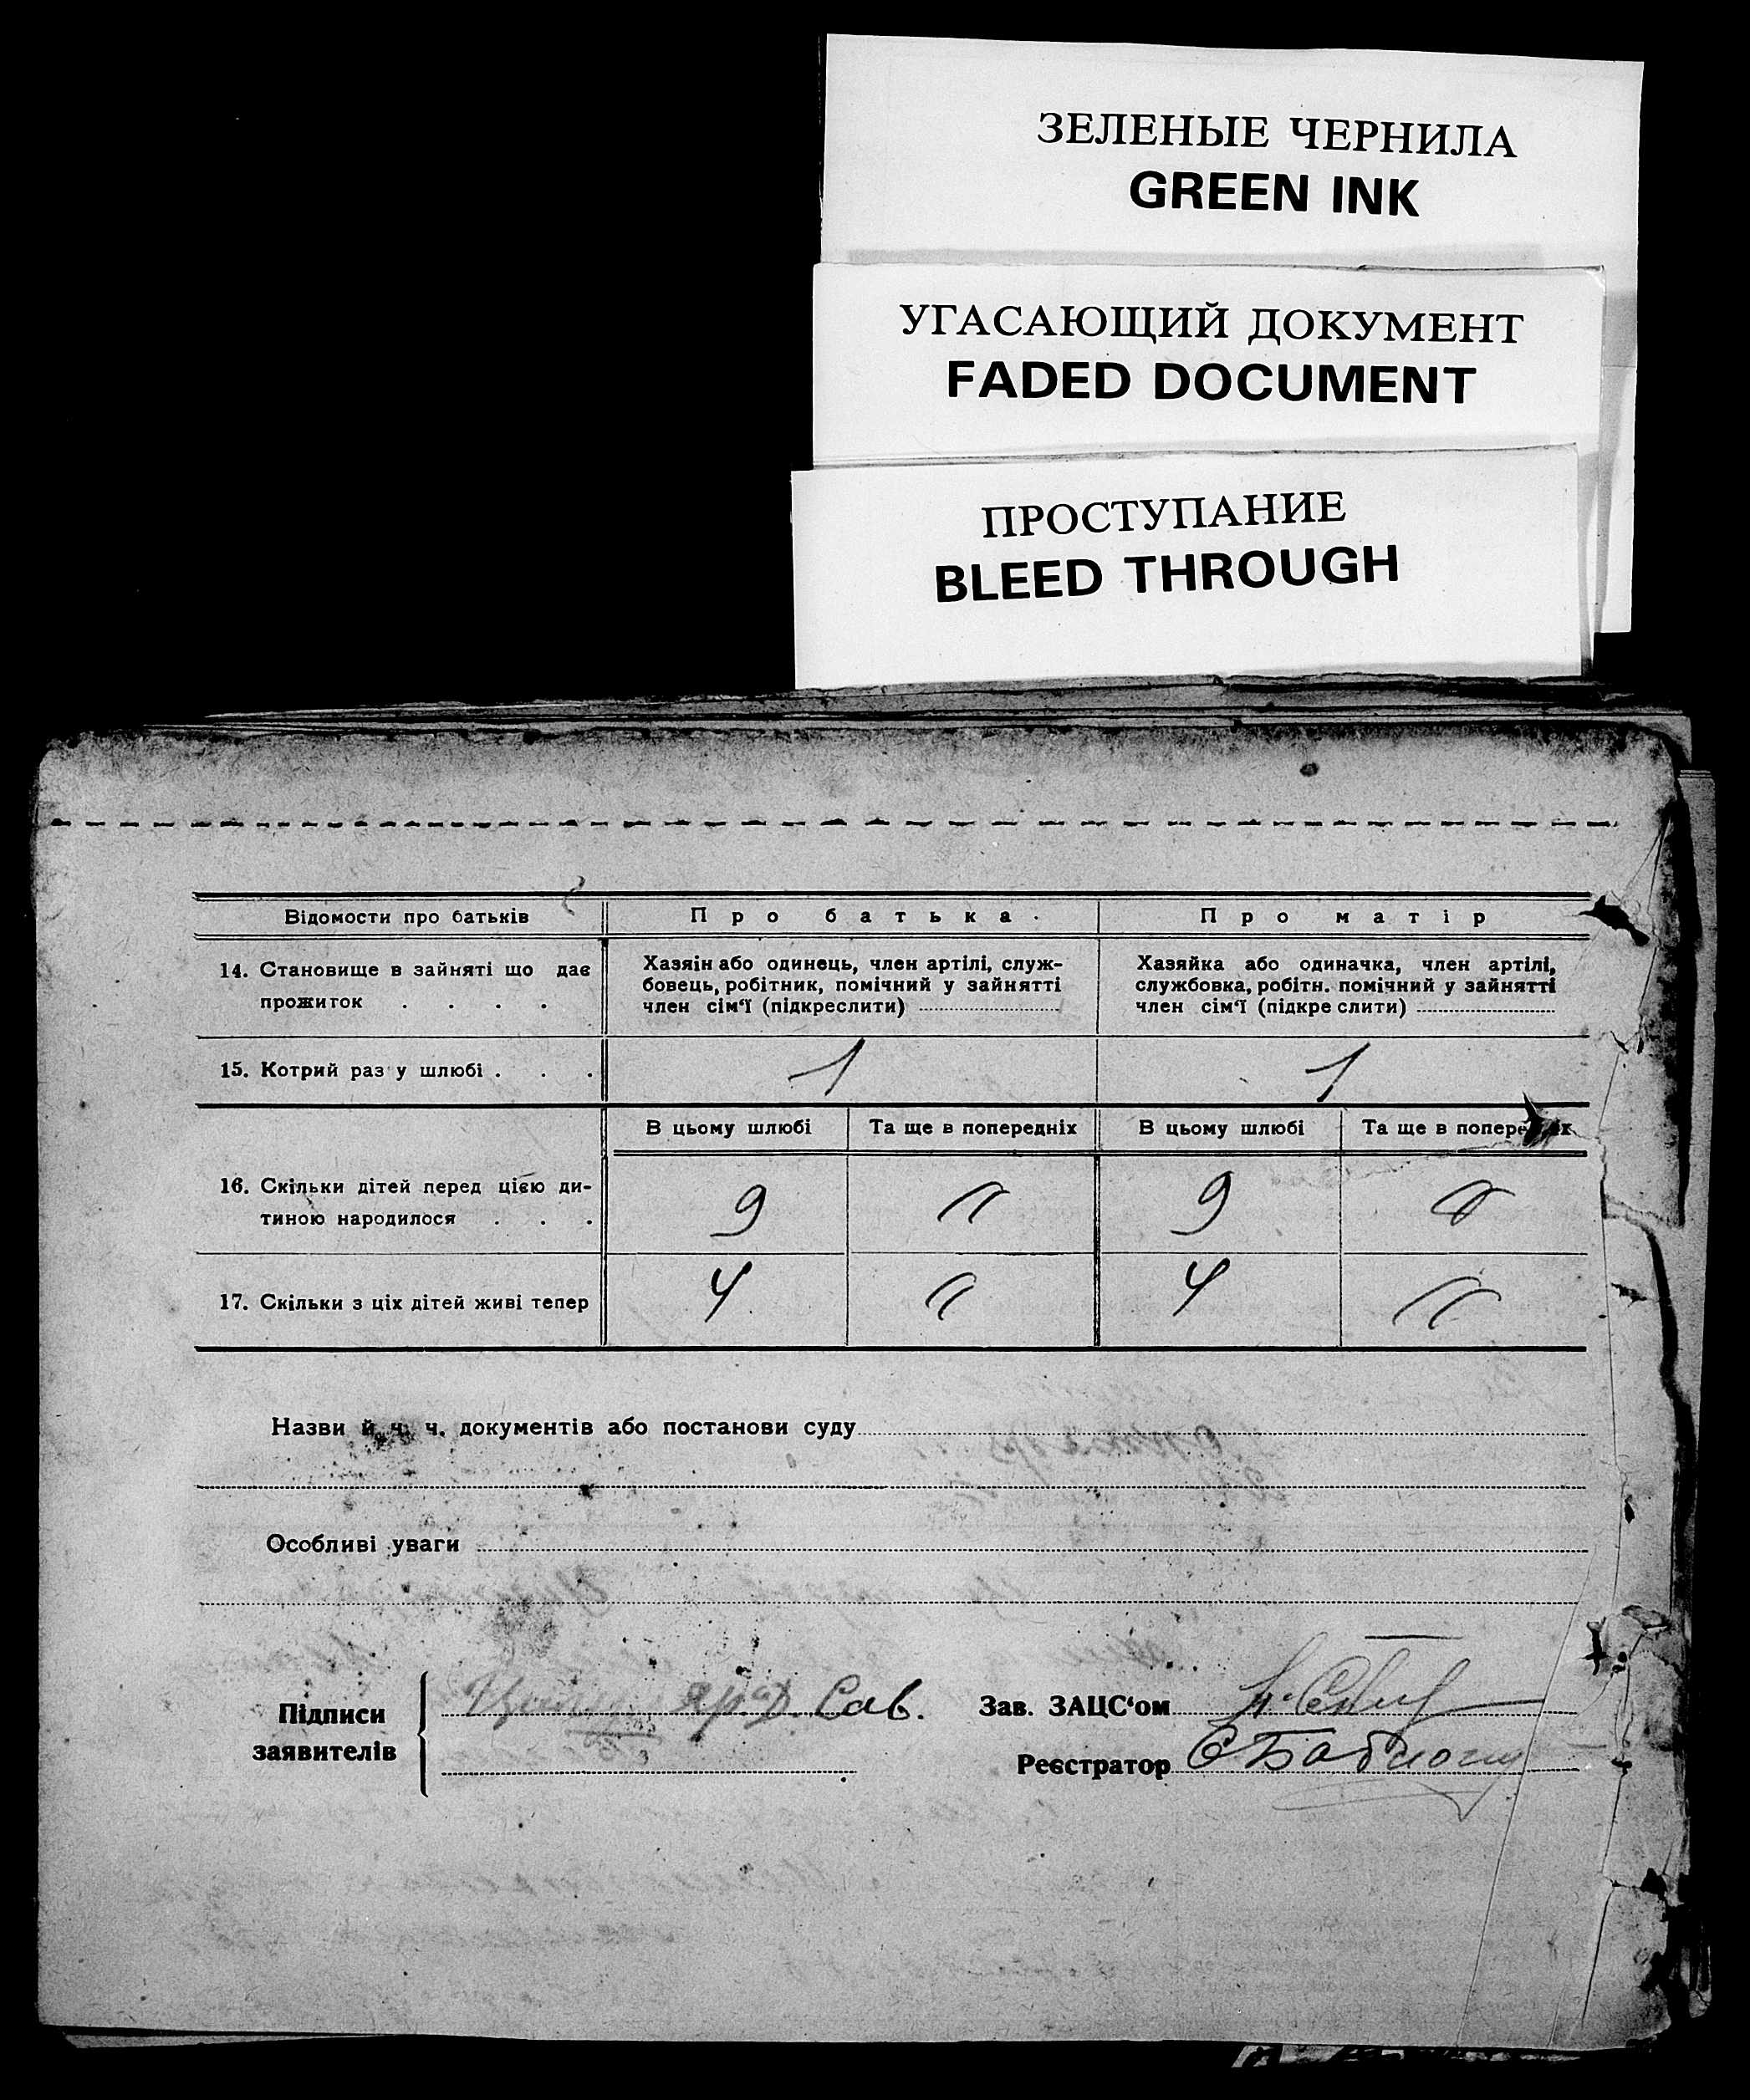 ЗЕЛЕНЫЕ ЧЕРНИЛА
GREEN INK
УГАСАЮЩИЙ ДОКУМЕНТ
FADED DOCUMENT
ПРОСТУПАНИЕ
BLEED THROUGH
Відомости про батьків Про батька. Про матір
14. Становище в зайняті що дає прожиток . . . .
Хазяін або одинець, член артілі, служ-
бовець, робітник, помічний у зайнятті
член сім‘ї (підкреслити)
Хазяйка або одиначка, член артілі,
службовка, робітн. помічний у зайнятті
член сім‘ї (підкреслити)
15. Котрий раз у шлюбі . . . 1 1
В цьому шлюбі Та ще в попередніх В цьому шлюбі Та ще в
16. Скільки дітей перед цією ди-
тиною народилося . . . 9 〃 9
17. Скільки з ціх дітей живі тепер 4 〃 4 〃
Назви й ч. ч. документів або постанови суду
Особливі уваги
Підписи
заявителів
Сав.
Зав. ЗАЦС‘ом
Реєстратор